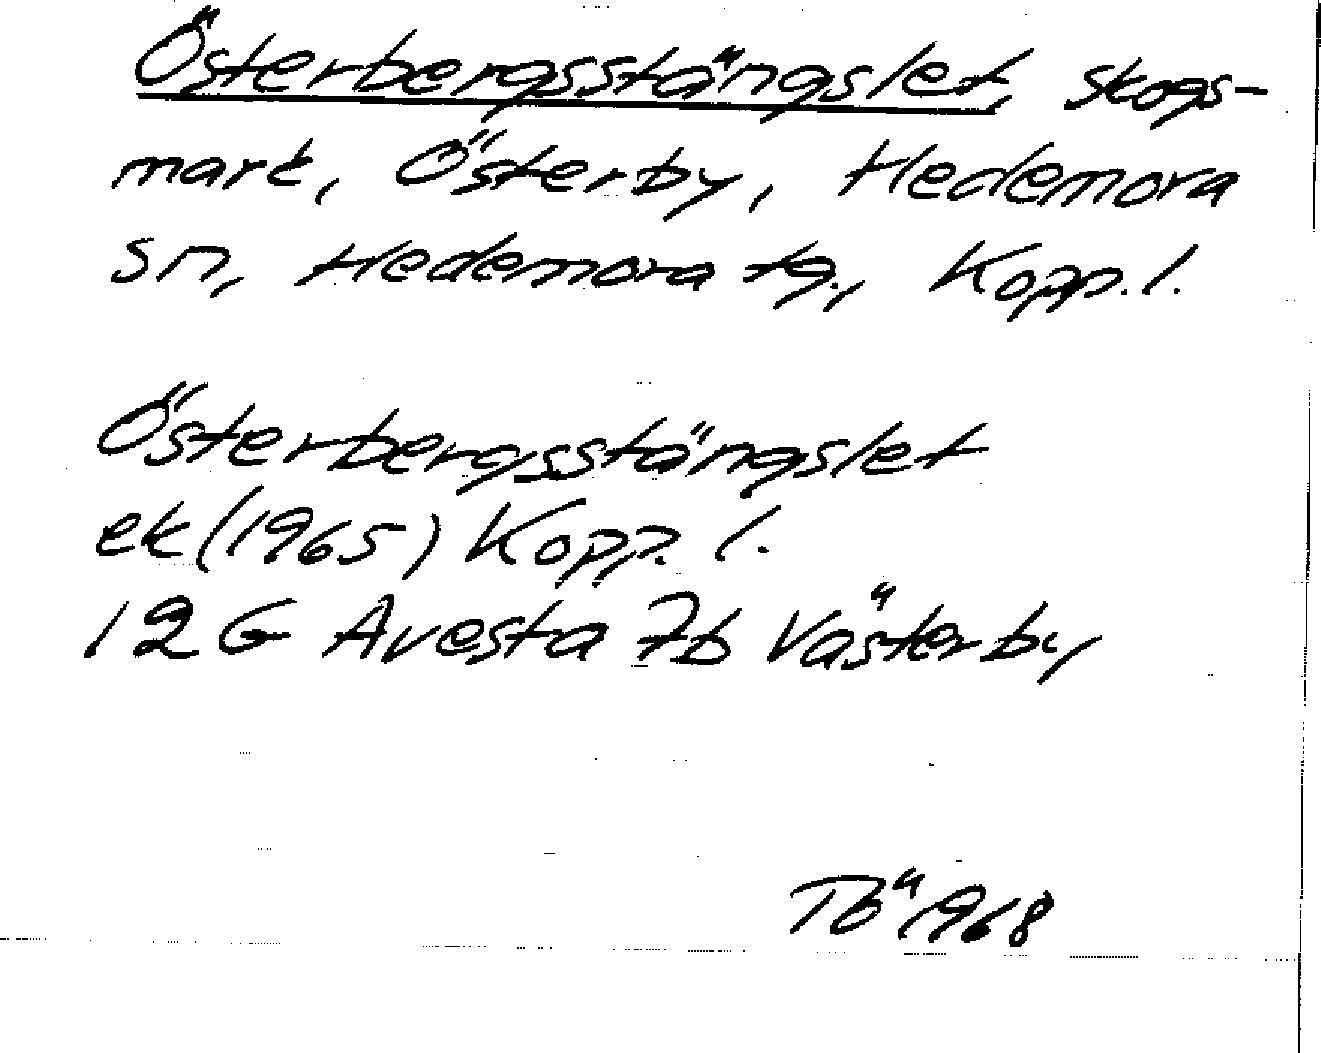 Österbergsstängslet, skogs-
mark, Österby, Hedemora
sn, Hedemora tg., Kopp. l.
Österbergsstängslet
ek (1965) Kopp. l.
12 G Avesta 7b Västerby
TBä 1968